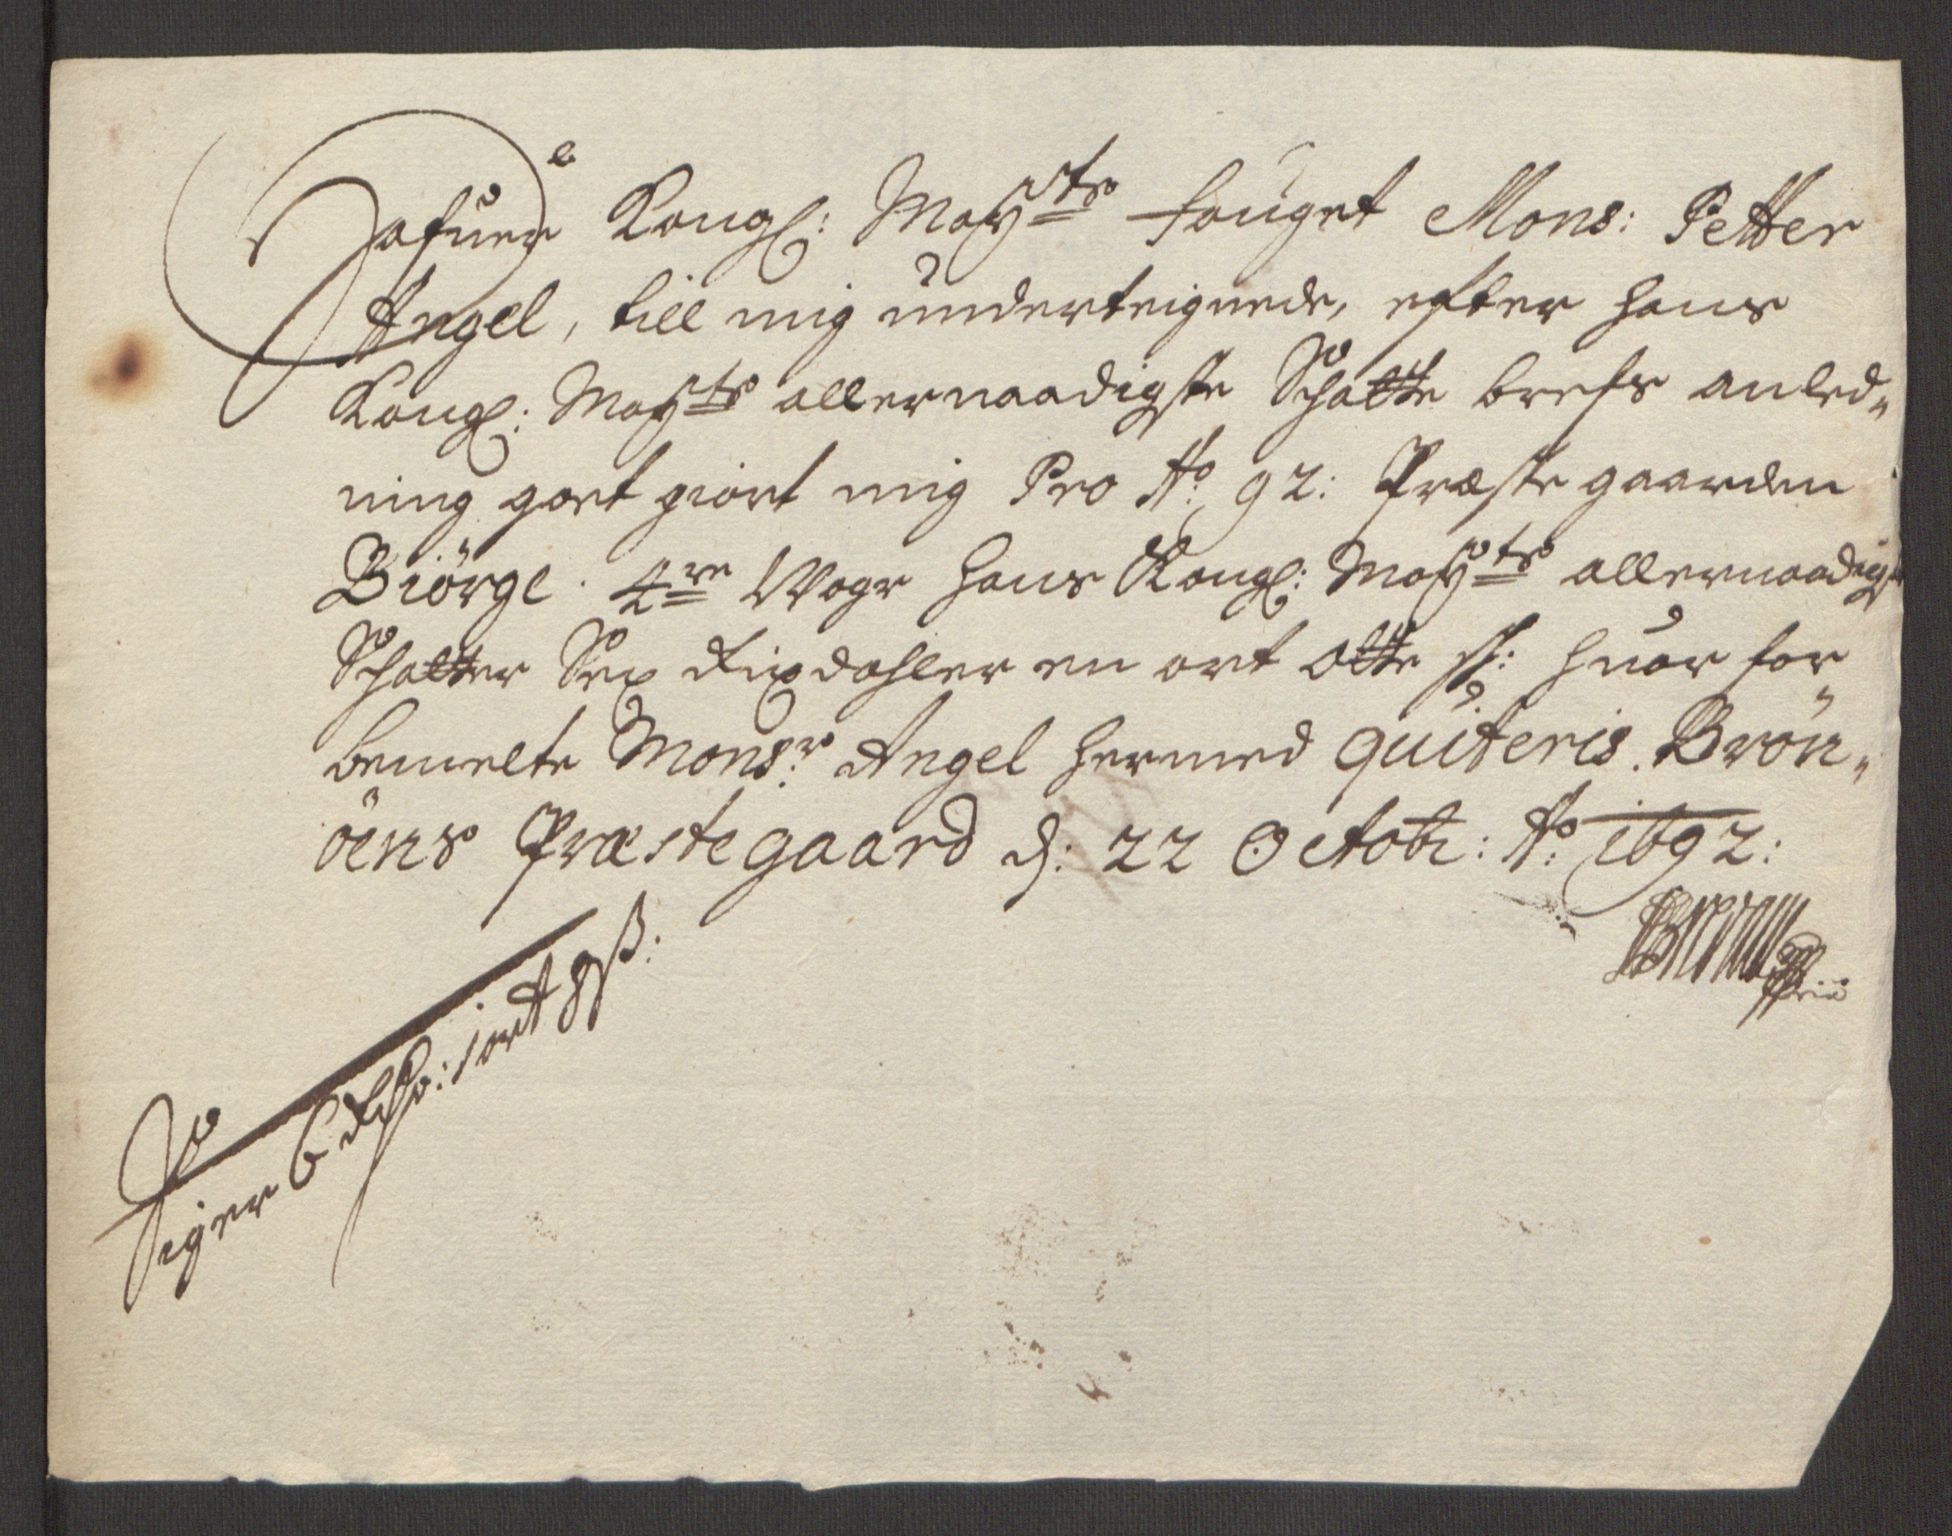 Hafuer Kongl: Mayts fouget Mons: Petter
Angel, till mig underteignede, efter hans
Kongl: Mayts allernaadigste Schatte brefs anled-
ning gott giort mig Pro Ao 92: Præste gaarden
Biörge. 4re Woge hans Kongl: Mayts allernaadigst
Schatter Sex Rixdahler en ort Otte sh: huor for
bemelte Monsr Angel hermed quiteris. Brön-
öens Præstegaard d: 22 Octobr: Ao 1692:
Siger 6 Rixdr: 1 ort 8 ß: